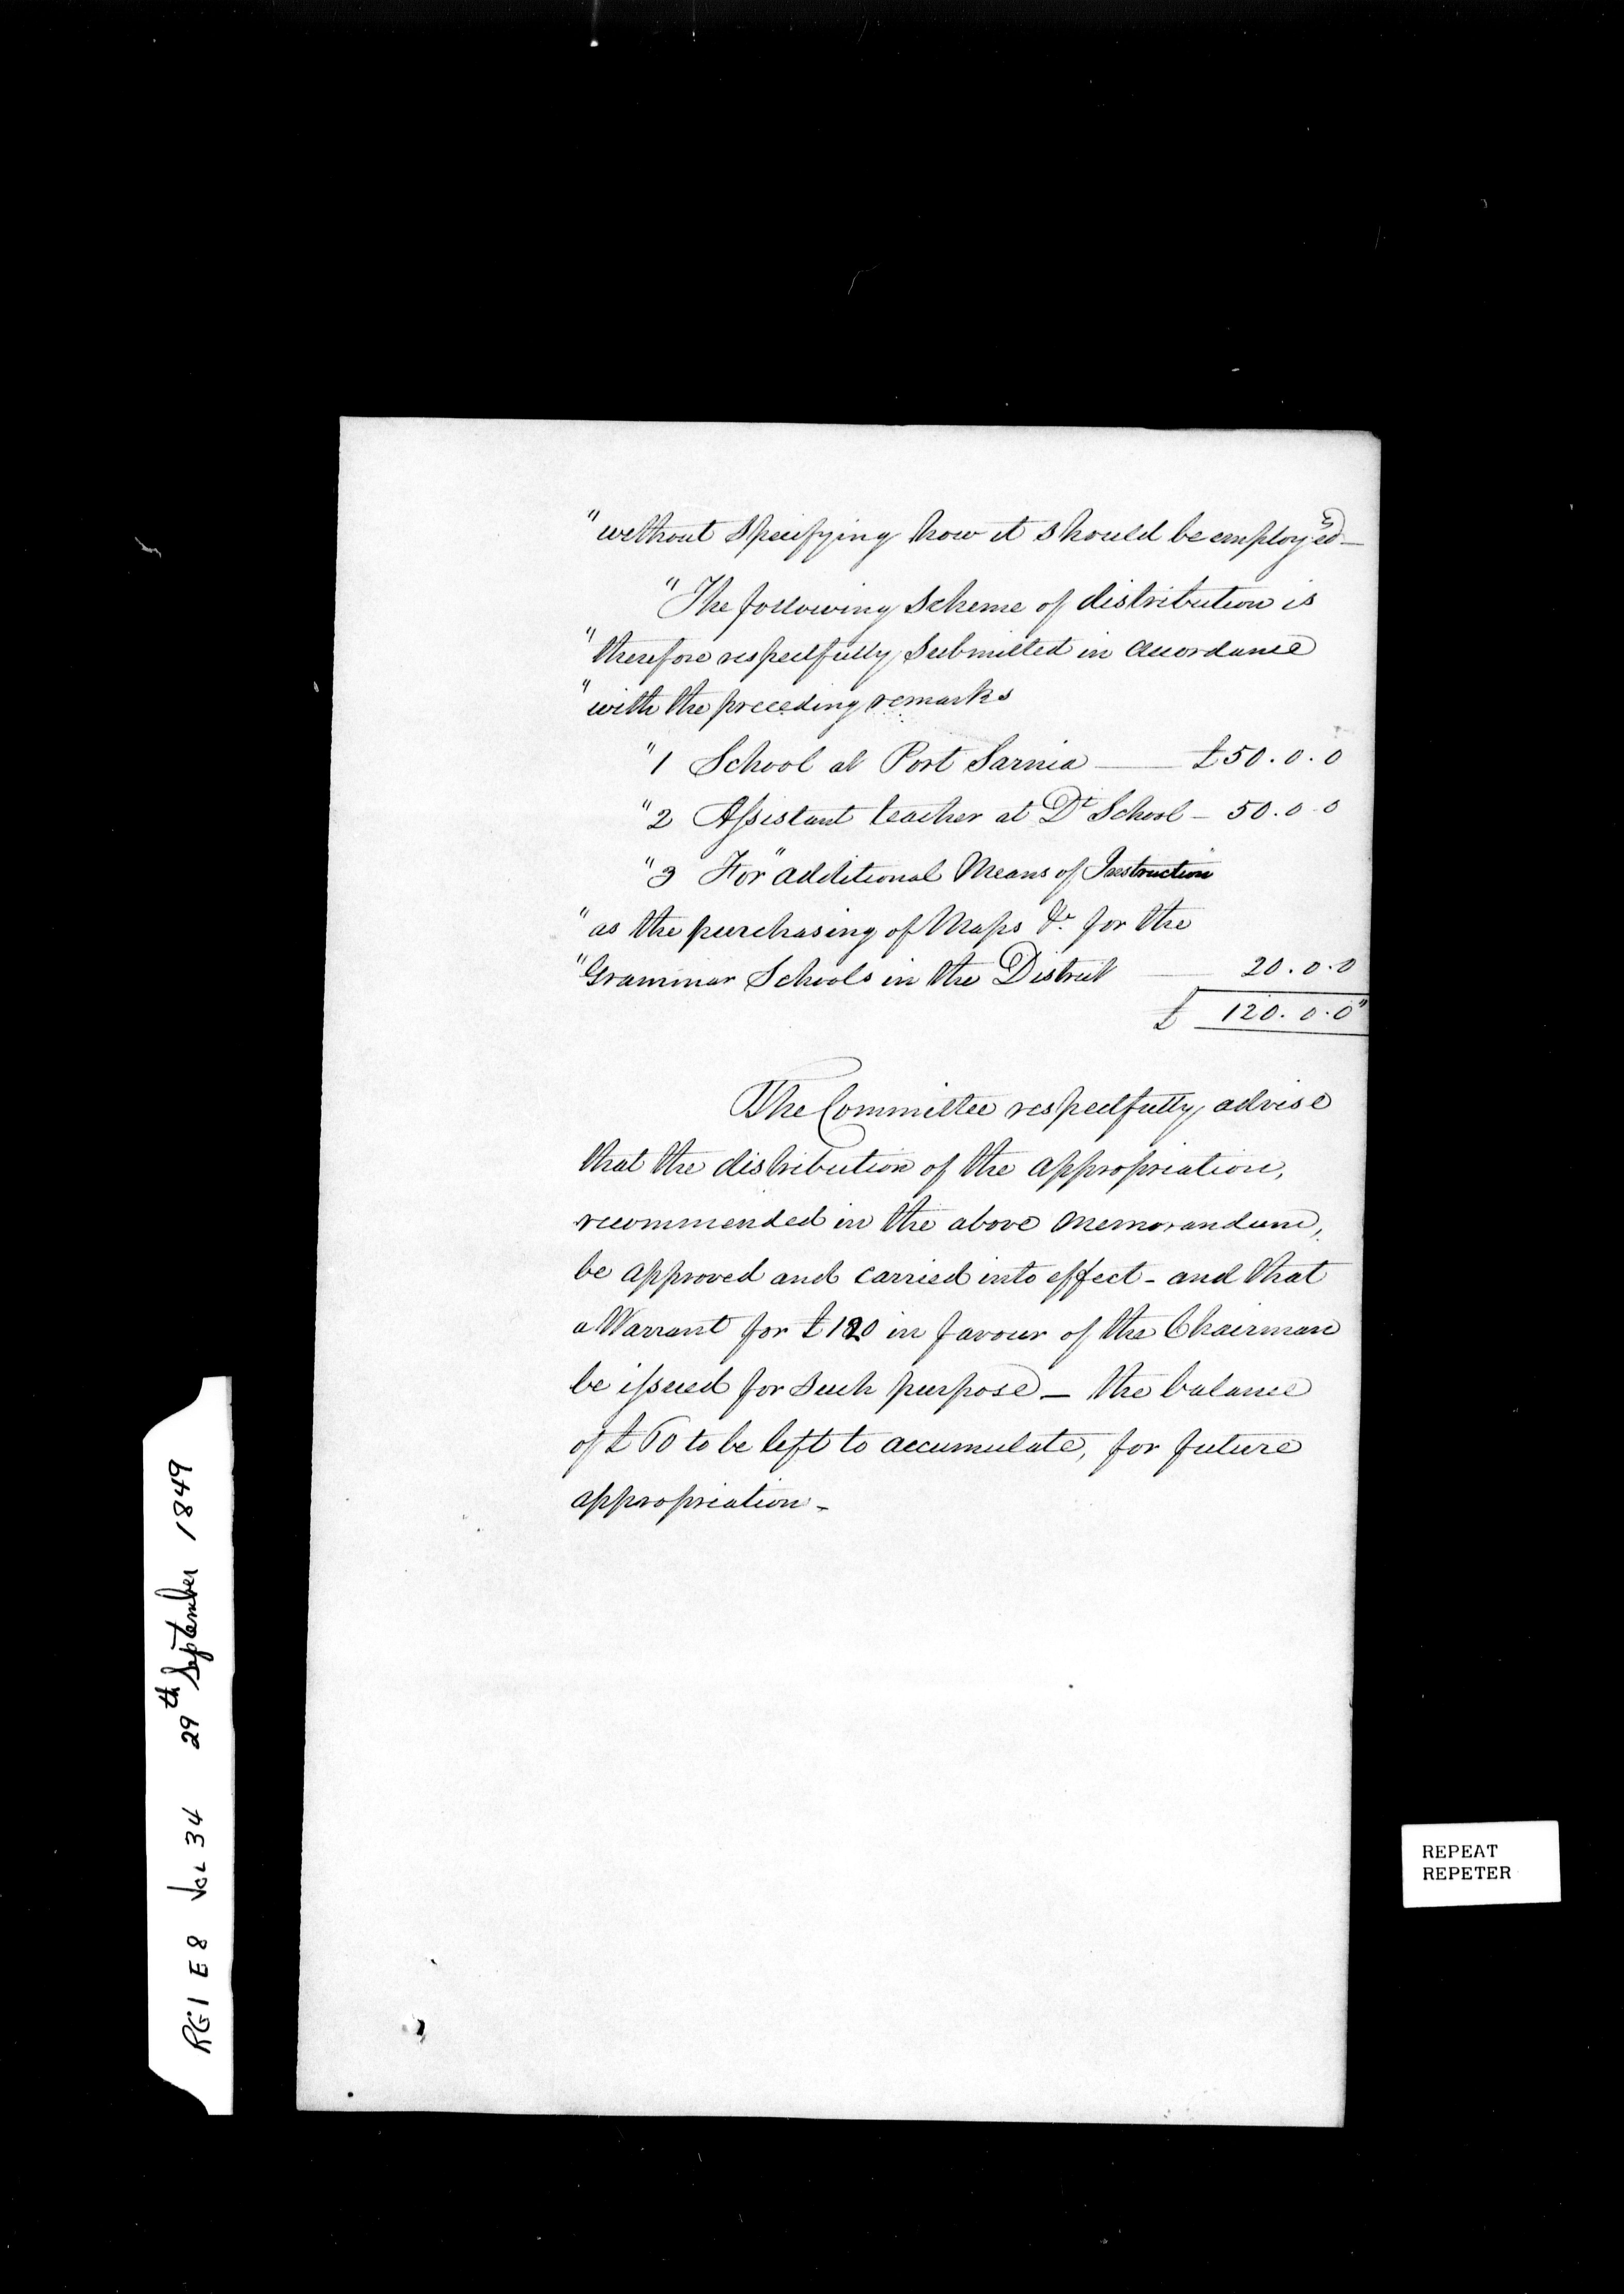 "without specifying how it should be employed—
"The following Scheme of distribution is
"therefore respectfully Submitted in accordance
"with the preceding remarks
"1 School at Port Sarnia — £50.0.0
"2 Assistant teacher at Dt School – 50.0.0
"3 For "additional Means of Instruction
"as the purchasing of Maps &c. for the
"Grammar Schools in the District — 20.0.0
£ 120.0.0"
The Committee respectfully advise
that the distribution of the appropriation,
recommended in the above memorandum,
be approved and carried into effect – and that
a Warrant for £120 in favour of the Chairman
be issued for such purpose – the balance
of £ to be left to accumulate, for future
appropriation –
RG1 E8 Vol 34 29th September 1849
REPEAT
REPETER